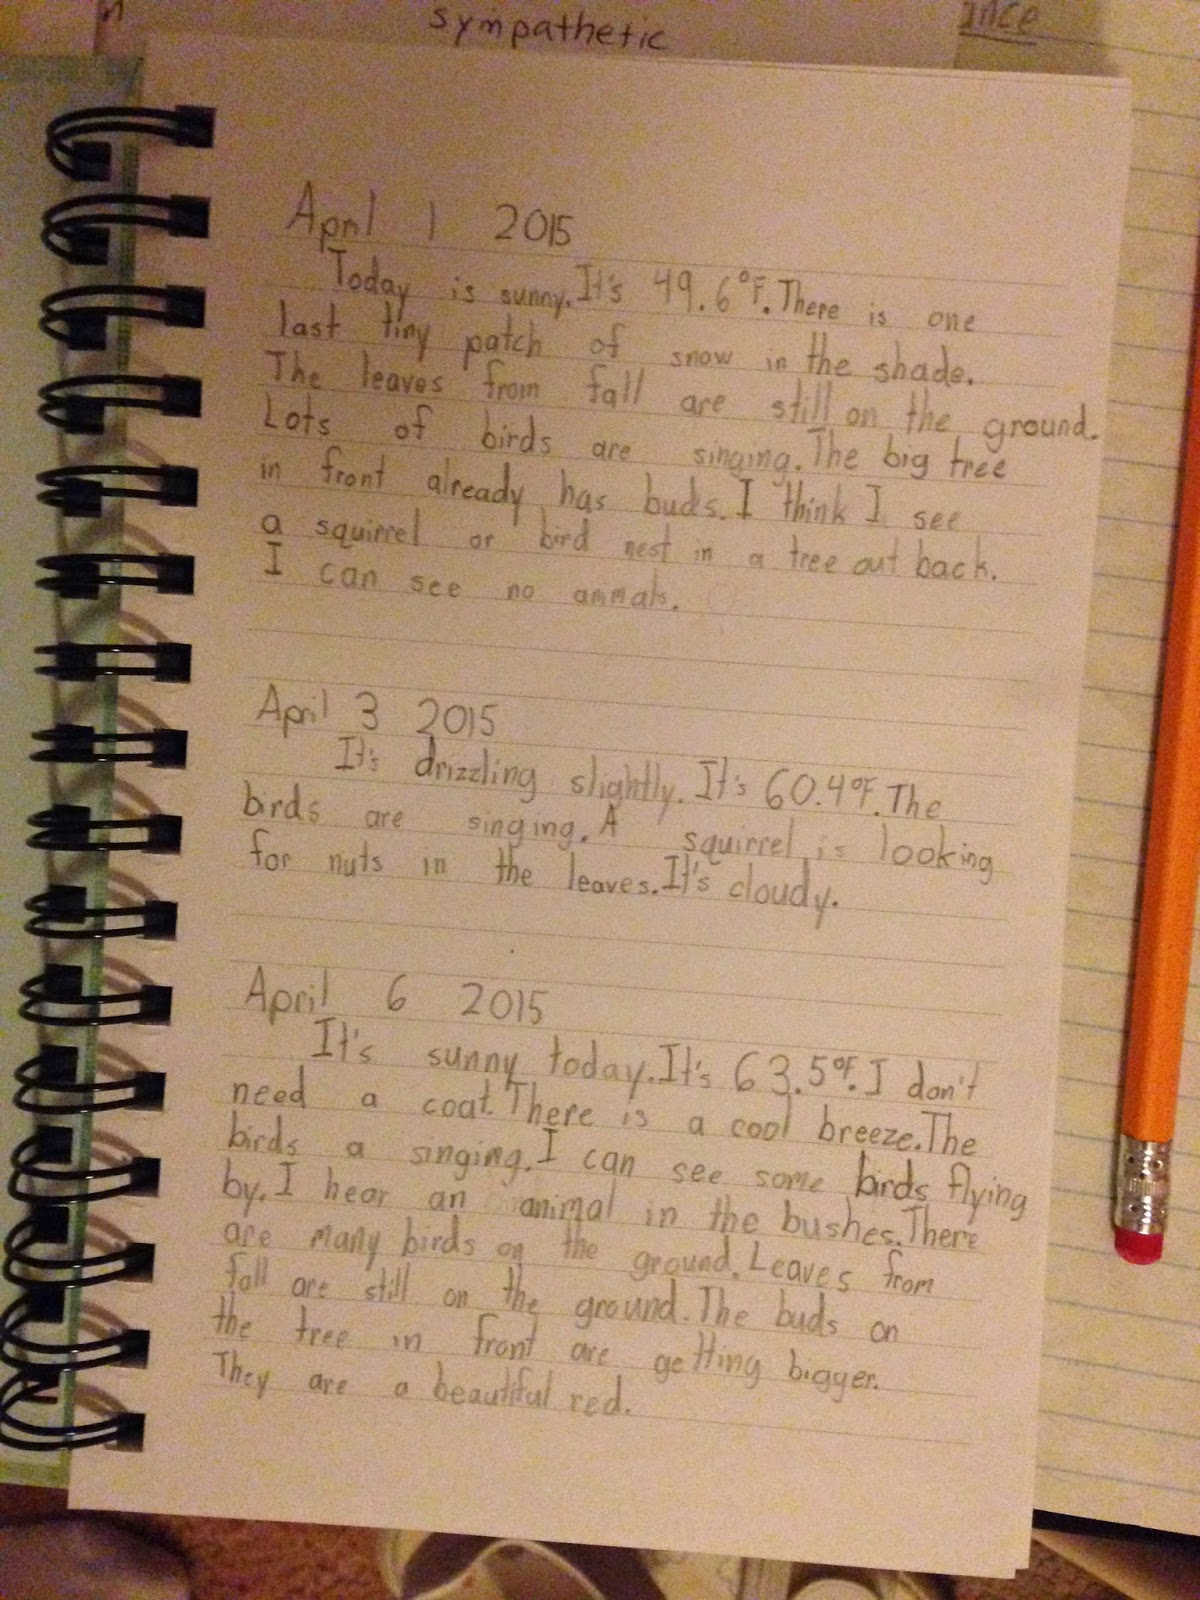 sympathetic
ance
April 1 2015
Today is sunny. It's 49.6°F. There is one
last tiny patch of snow in the shade.
The leaves from fall are still on the ground.
Lots of birds are singing. The big tree
in front already has buds. I think I see
a squirrel or bird nest in a tree out back.
I can see no animals.
April 3 2015
It's drizzling slightly. It's 60.4°F. The
birds are singing. A squirrel is looking
for nuts in the leaves. It's cloudy.
April 6 2015
It's sunny today. It's 63.5°F. I don't
need a coat. There is a cool breeze. The
birds a singing. I can see some birds flying
by. I hear an animal in the bushes. There
are many birds on the ground. Leaves from
fall are still on the ground. The buds on
the tree in front are getting bigger.
They are a beautiful red.